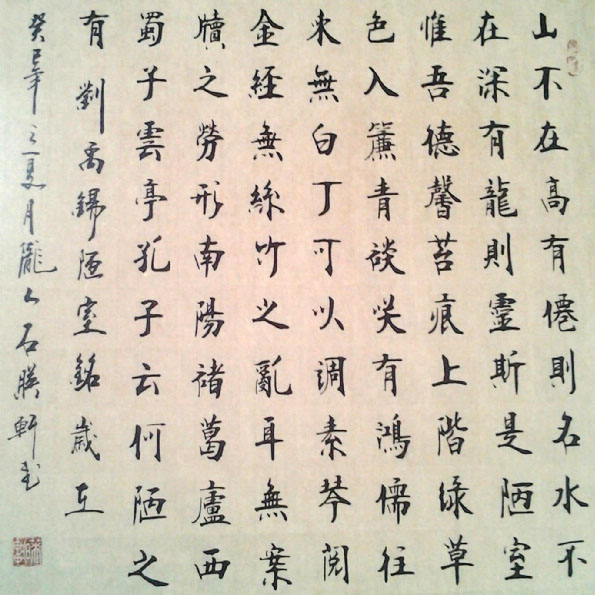 山不在高有僊則名水不
在深有龍則靈斯是陋室
惟吾德馨苔痕上階綠草
色入簾青談咲有鴻儒往
来無白丁可以調素琴閱
金經無絲竹之亂耳無案
牘之勞形南陽褚葛廬西
蜀子雲亭孔子云何陋之
有 劉禹錫陋室銘歲在
癸巳年之夏月隴人石軒书